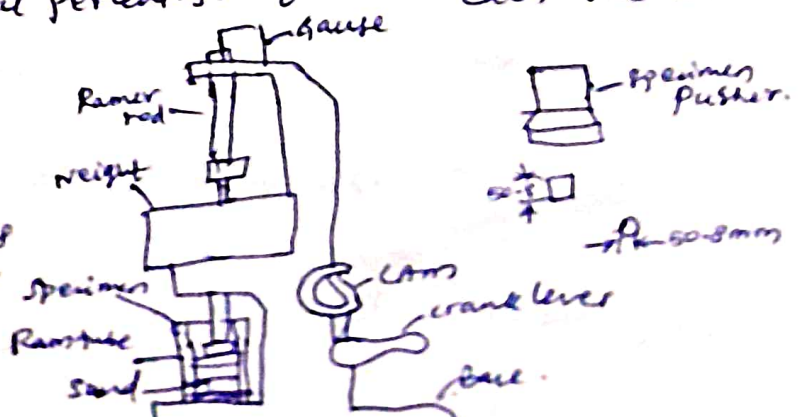 Gauge
Ramer
rod
Weight
Specimen
Ram tube
Sand
CAM
crank lever
base.
specimen
pusher.
50.8mm